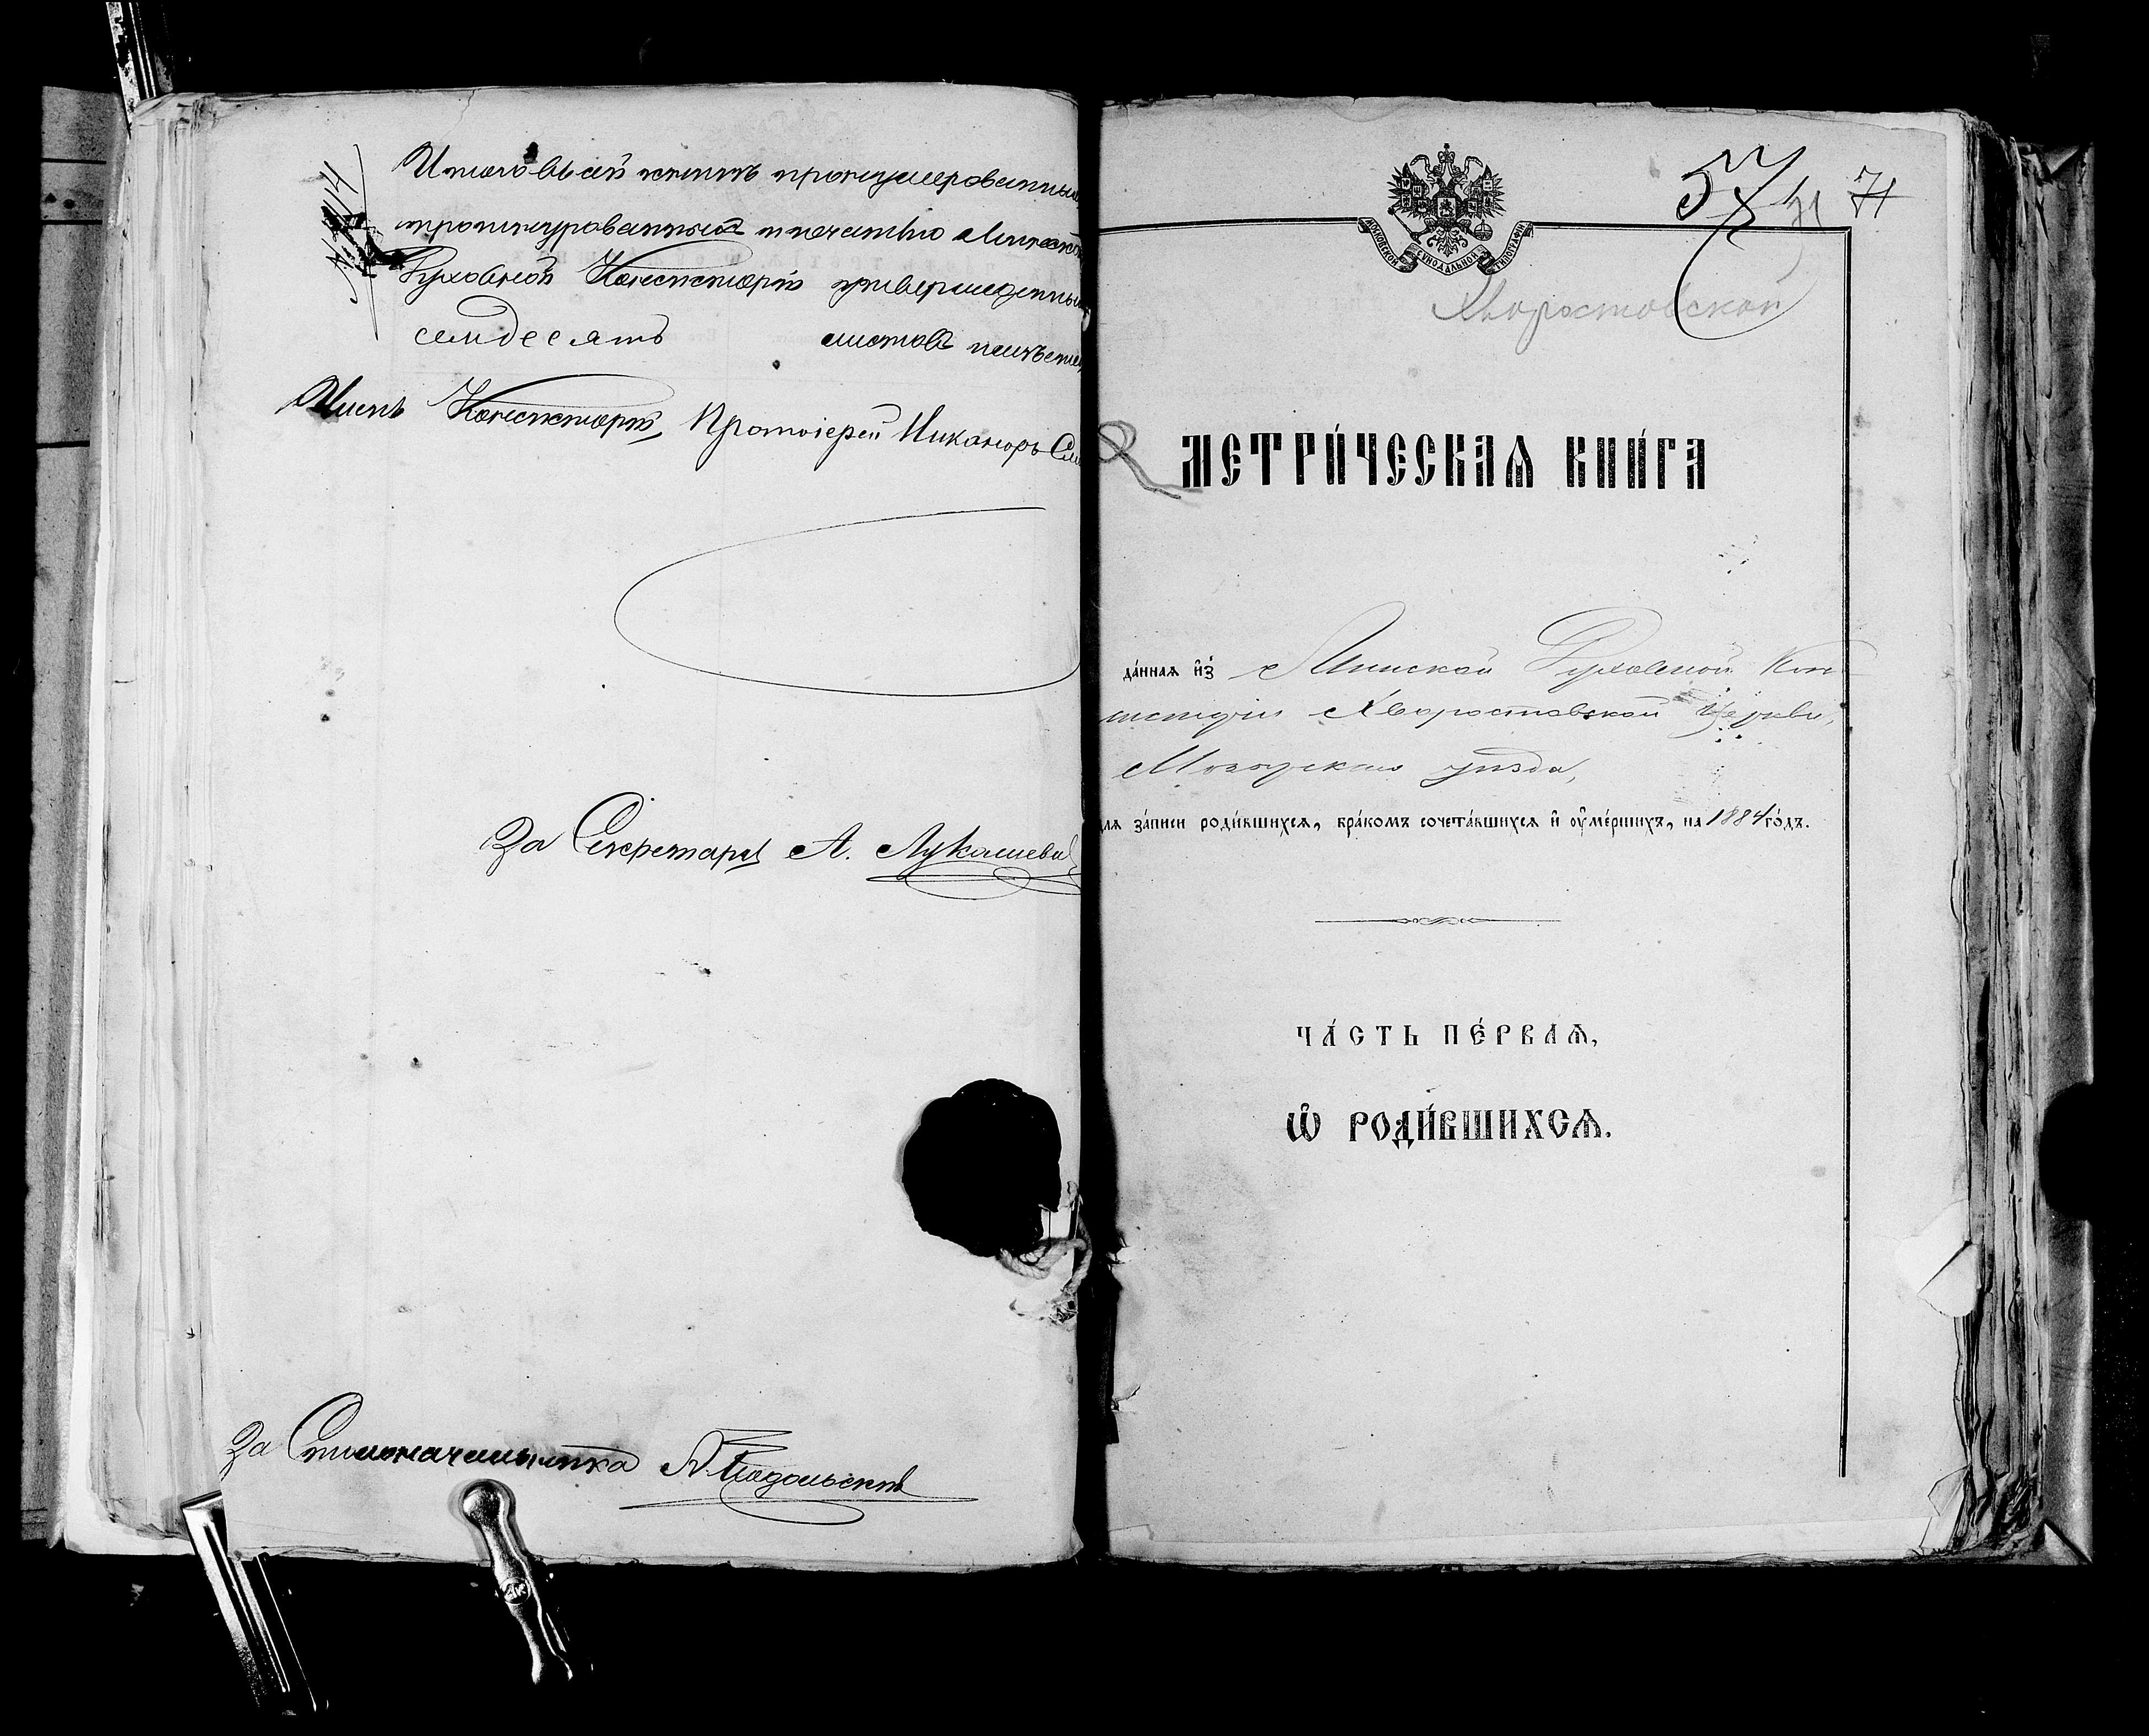 Итого въ сей книгѣ пронумерованныхъ
прошнурованныхъ и печатью Минской
Духовной Консисторіи утвержденныхъ
семдесятъ листовъ
Членъ Консисторіи, Протоіерей Никаноръ
За Секретаря А. Лукашеви
За Столоначальника А. Подольскій
57 71 71
МОСКОВСКОЙ СѴНОДАЛЬНОЙ ТИПОГРАФІИ
Хворостовской
МЕТРИ́ЧЕСКАѦ КНИ́ГА
да́ннаѧ и҆з̾ Минской Духовной Кон-
систоріи Хворостовской Церкви,
Мозырскаго уѣзда,
для за́писи роди́вшихсѧ, бра́комъ сочета́вшихсѧ и҆ ᲂу҆ме́ршихъ, на 1884 го́дъ.
ЧА́СТЬ ПЕ́РВАѦ,
Ѡ҆ РОДИ́ВШИХСѦ.